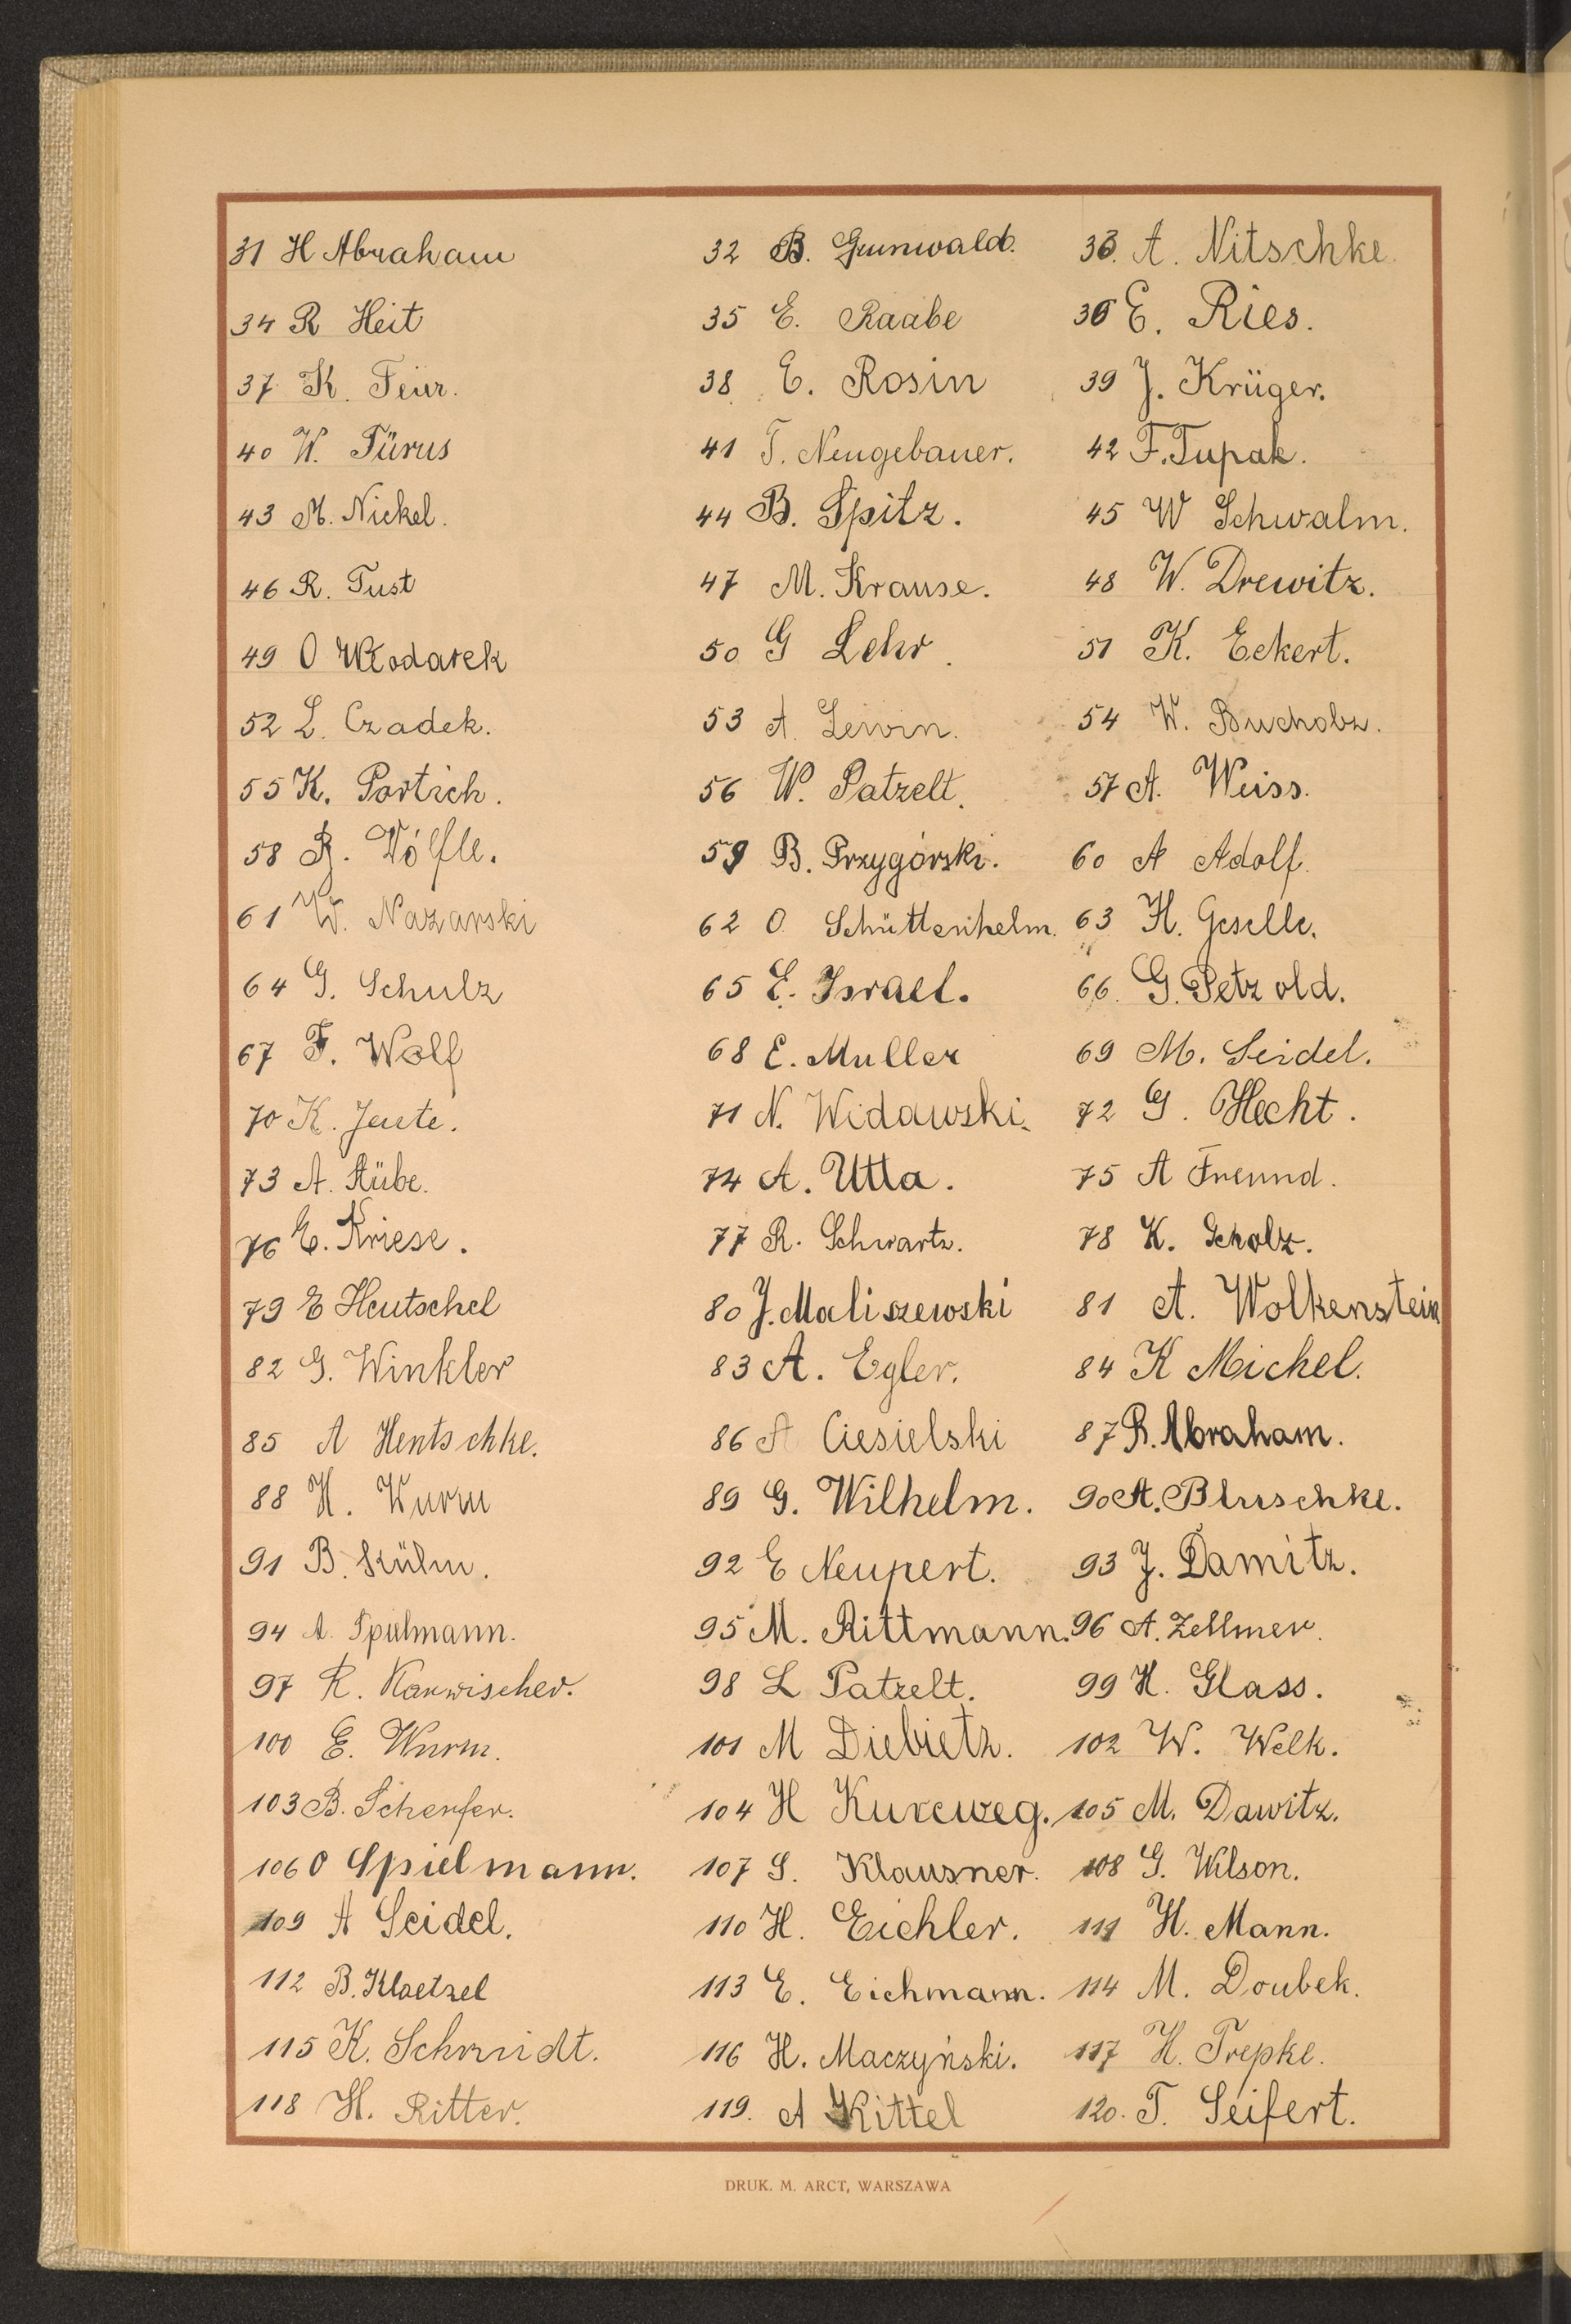 31 H Abraham 32 B. Grunwald. 33. A. Nitschke.
34 R Heit 35 E. Raabe 36 E. Ries.
37 K. Feur. 38 E. Rosin 39 J. Krüger.
40 W. Fürus 41 T. Neugebauer. 42 F. Tupak.
43 M. Nickel. 44 B. Spitz. 45 W Schwalm.
46 R. Tust 47 M. Krause. 48 W. Drewitz.
49 O Włodarek 50 G Lehr. 51 K. Eckert.
52 L. Czadek. 53 A. Lewin. 54 W. Bucholz.
55 K. Portich. 56 W. Patzelt. 57 A. Weiss.
58 R. Wólfle. 59 B. Przygórski. 60 A Adolf.
61 W. Nazarski 62 O. Schüttenhelm. 63 H. Geselle.
64 G. Schulz 65 E. Israel. 66. G. Petzold.
67 F. Wolf 68 E. Muller 69 M. Seidel.
70 K. Jeute. 71 N. Widawski. 72 G. Hecht.
73 A. Stübe. 74 A. Utta. 75 A Freund.
76 E. Kriese. 77 R. Schwartz. 78 K. Scholz.
79 E Heutschel 80 J. Maliszewski 81 A. Wolkenstein
82 G. Winkler 83 A. Egler. 84 K Michel.
85 A Hentschke. 86 A Ciesielski 87 R. Abraham.
88 H. Wurm 89 G. Wilhelm. 90 A. Bluschke.
91 B. Kühn. 92 E Neupert. 93 J. Damitz.
94 A. Spielmann. 95 M. Rittmann. 96 A. Zellmer.
97 R. Karwischer. 98 L Patzelt. 99 H. Glass.
100 E. Wurm. 101 M Diebietz. 102 W. Welk.
103 B. Scherfer. 104 H Kurcweg. 105 M. Dawitz.
106 O Spielmann. 107 S. Klausner. 108 G. Wilson.
109 A Seidel. 110 H. Eichler. 111 H. Mann.
112 B. Kloetzel 113 E. Eichmann. 114 M. Doubek.
115 K. Schmidt. 116 H. Maczyński. 117 H. Trepke.
118 H. Ritter. 119. A Kittel 120. T. Seifert.
DRUK. M. ARCT, WARSZAWA